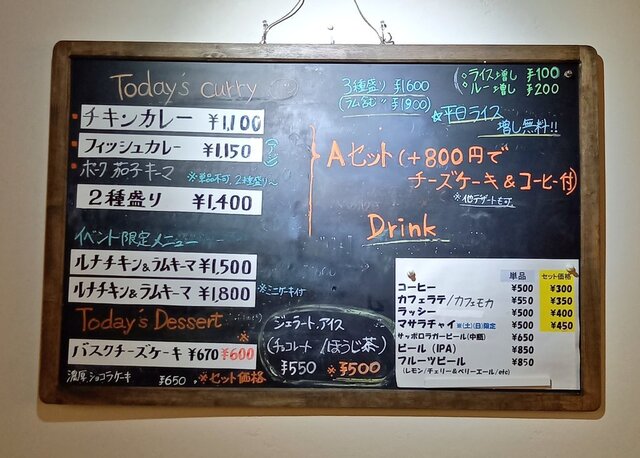 Today's curry
チキンカレー ¥1,100
フィッシュカレー ¥1,150 (アジ)
ポーク茄子キーマ ※単品不可、2種盛り〜
2種盛り ¥1,400
3種盛り ¥1600
(ラム含む〃 ¥1900)
○ライス増し ¥100
○ルー増し ¥200
☆平日ライス
増し無料!!
Aセット(+800円で
チーズケーキ&コーヒー付)
※他デザートも可
Drink
イベント限定メニュー
ルナチキン&ラムキーマ ¥1,500
ルナチキン&ラムキーマ ¥1,800 ※ミニケーキ付
Today's Dessert
※
バスクチーズケーキ ¥670 ¥600
濃厚ショコラケーキ ¥650 ※セット価格
ジェラート・アイス
(チョコレート/ほうじ茶)
¥550 ※¥500
単品 セット価格
コーヒー ¥500 ¥300
カフェラテ/カフェモカ ¥550 ¥350
ラッシー ¥500 ¥400
マサラチャイ ※(土)(日)限定 ¥500 ¥450
サッポロラガービール(中瓶) ¥650
ビール(IPA) ¥850
フルーツビール ¥850
(レモン/チェリー&ベリーエール/etc)